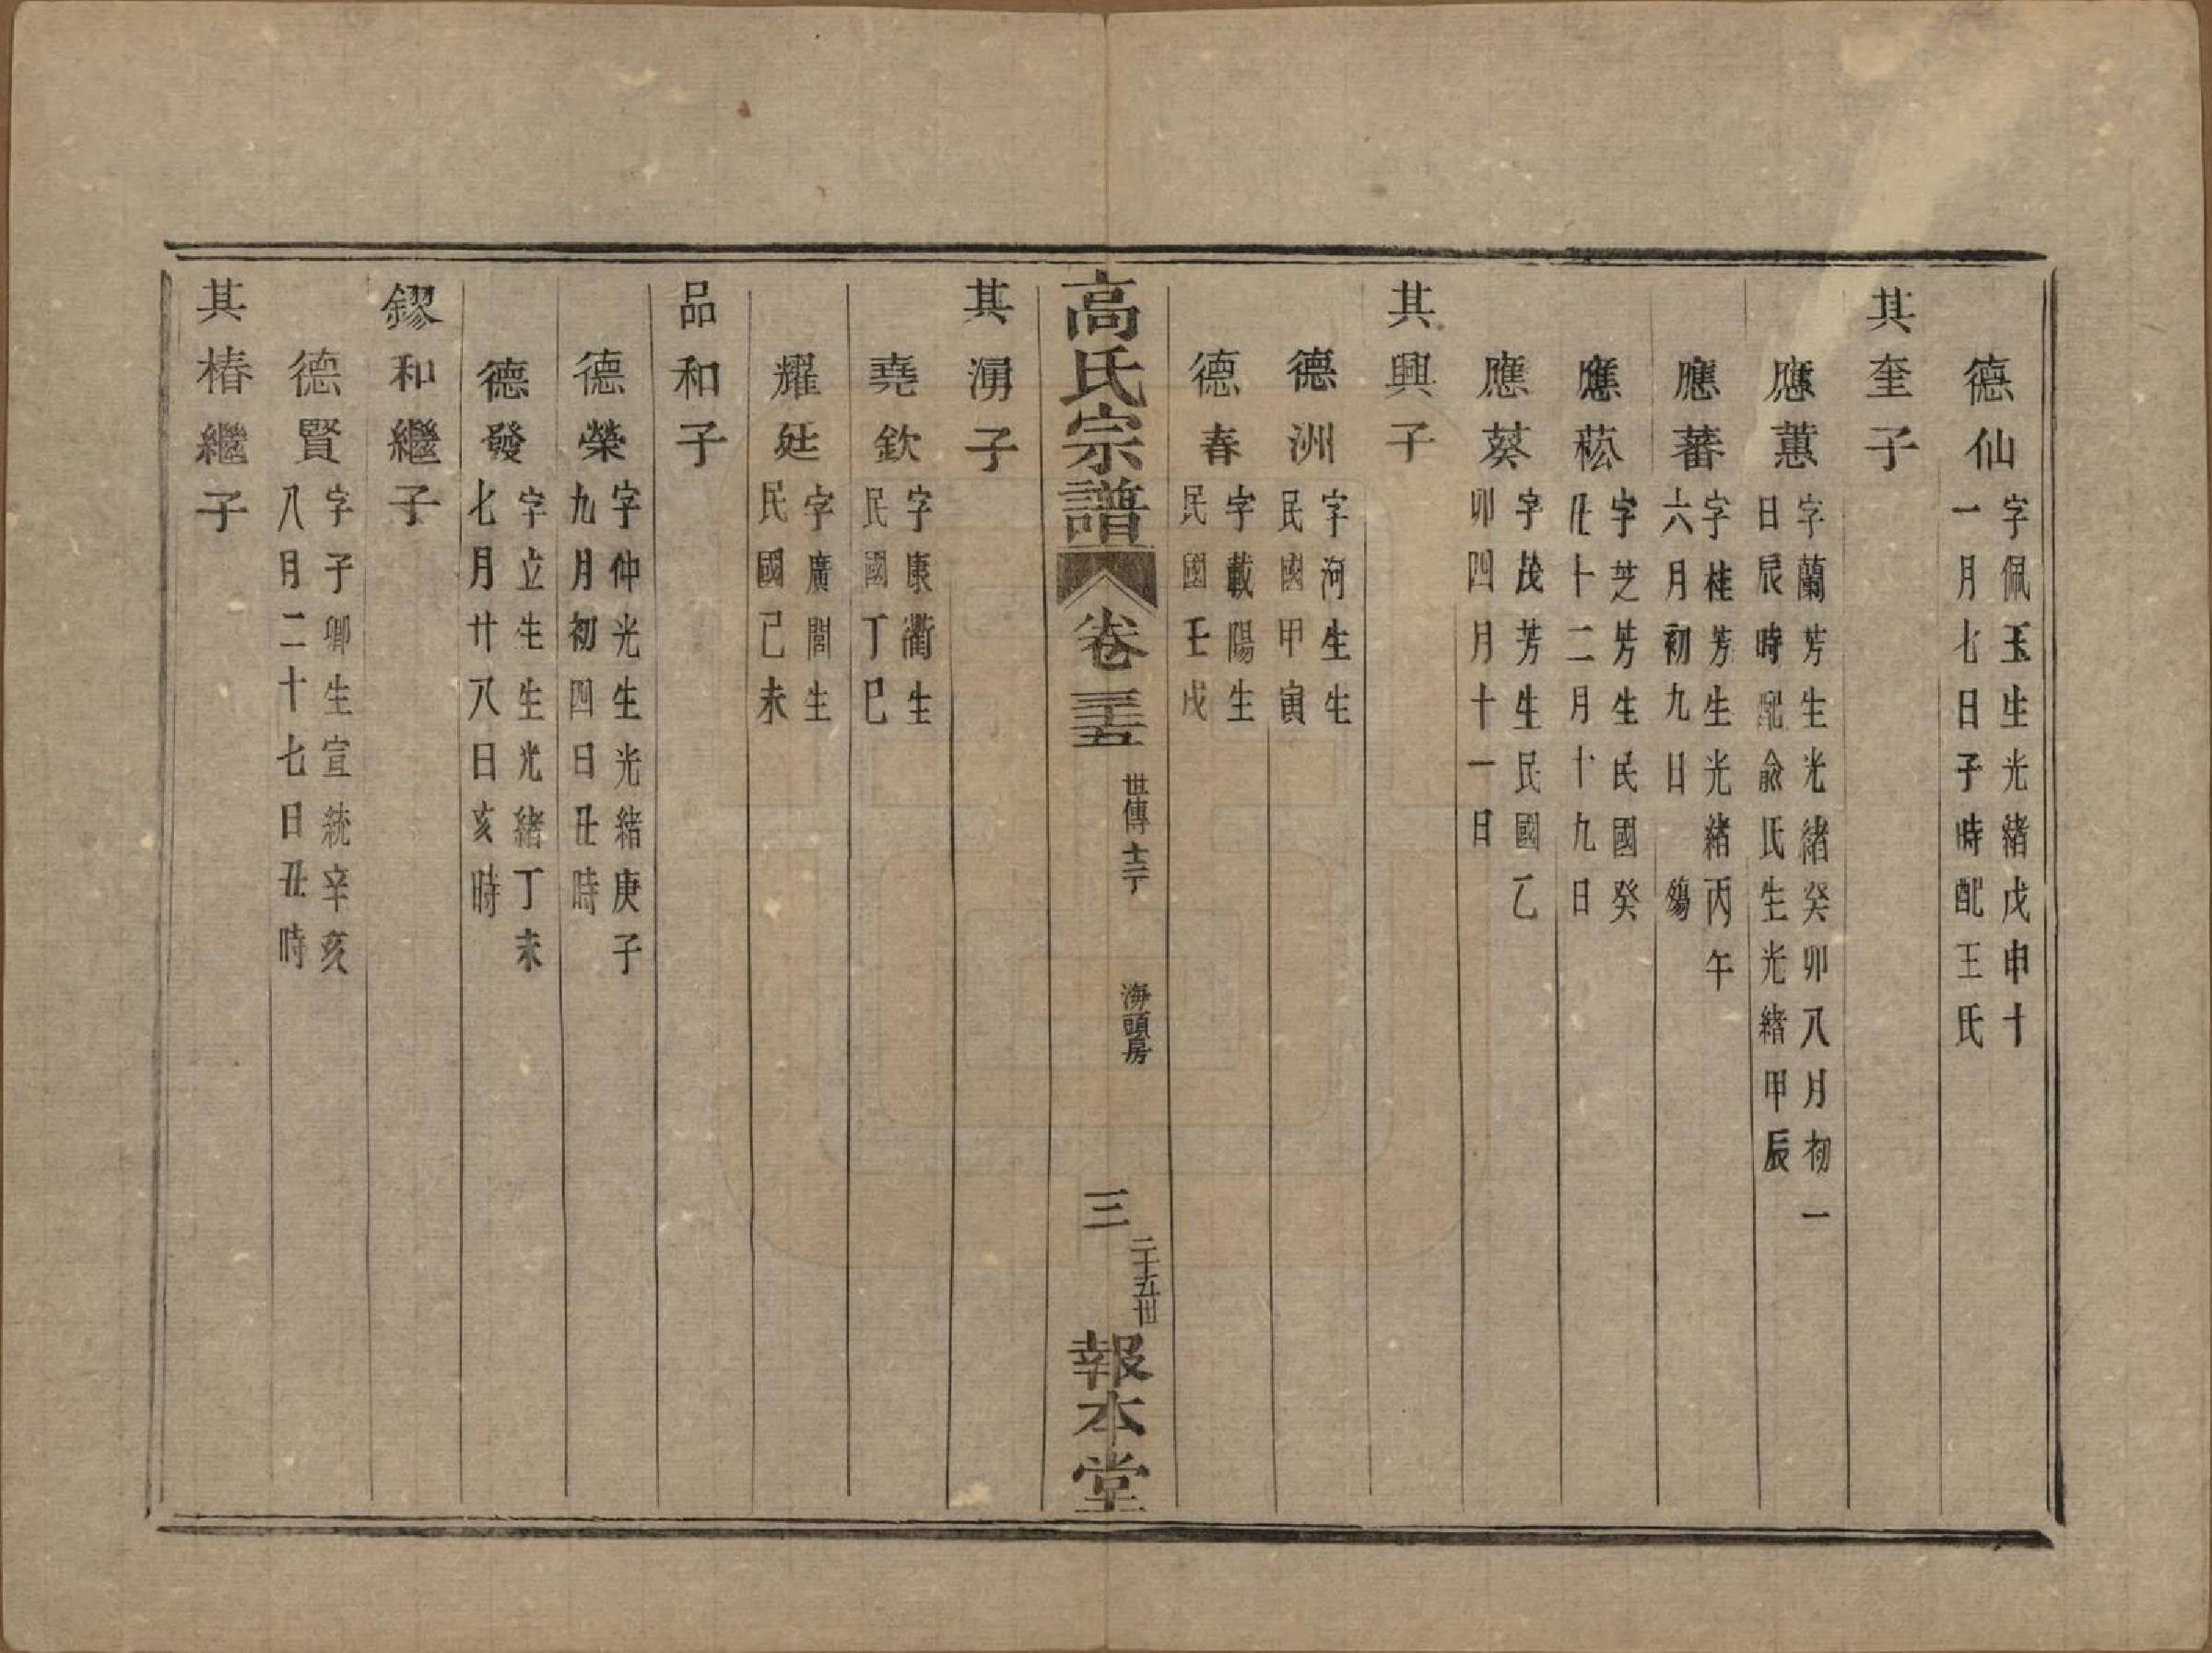 德仙
字佩玉生光緒戊申十
一月七日子時配王氏
其奎子
應蕙
字蘭芳生光緒癸卯八月初一
日辰時配俞氏生光緒甲辰
應蕃
字桂芳生光緒丙午
六月初九日 殤
應菘
字芝芳生民國癸
丑十二月十九日
應葵
字茂芳生民國乙
卯四月十一日
其興子
德洲
字河生生
民國甲寅
德春
字載陽生
民國壬戌
高氏宗譜
卷三十五
世傳 十二丁
海頭房
三
二十五世
報本堂
其湧子
堯欽
字康衢生
民國丁巳
耀廷
字廣間生
民國己未
品和子
德榮
字仲光生光緒庚子
九月初四日丑時
德發
字立生生光緒丁未
七月廿八日亥時
鏐和繼子
德賢
字子卿生宣統辛亥
八月二十七日丑時
其椿繼子